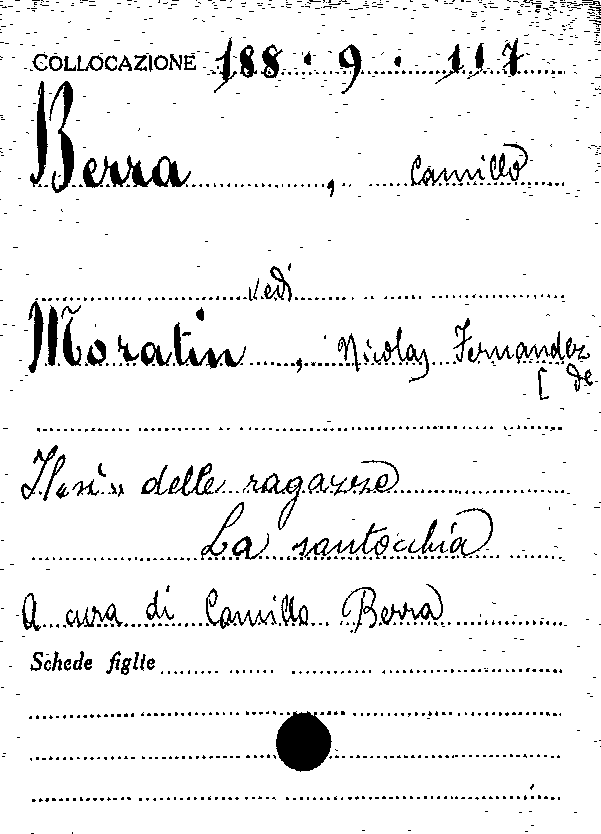 COLLOCAZIONE 188 · 9 · 117
Berra, Camillo
vedi
Moratin, Nicolas Fernandez
[ de
Il «si» delle ragazze
La santocchia
A cura di Camillo Berra
Schede figlie